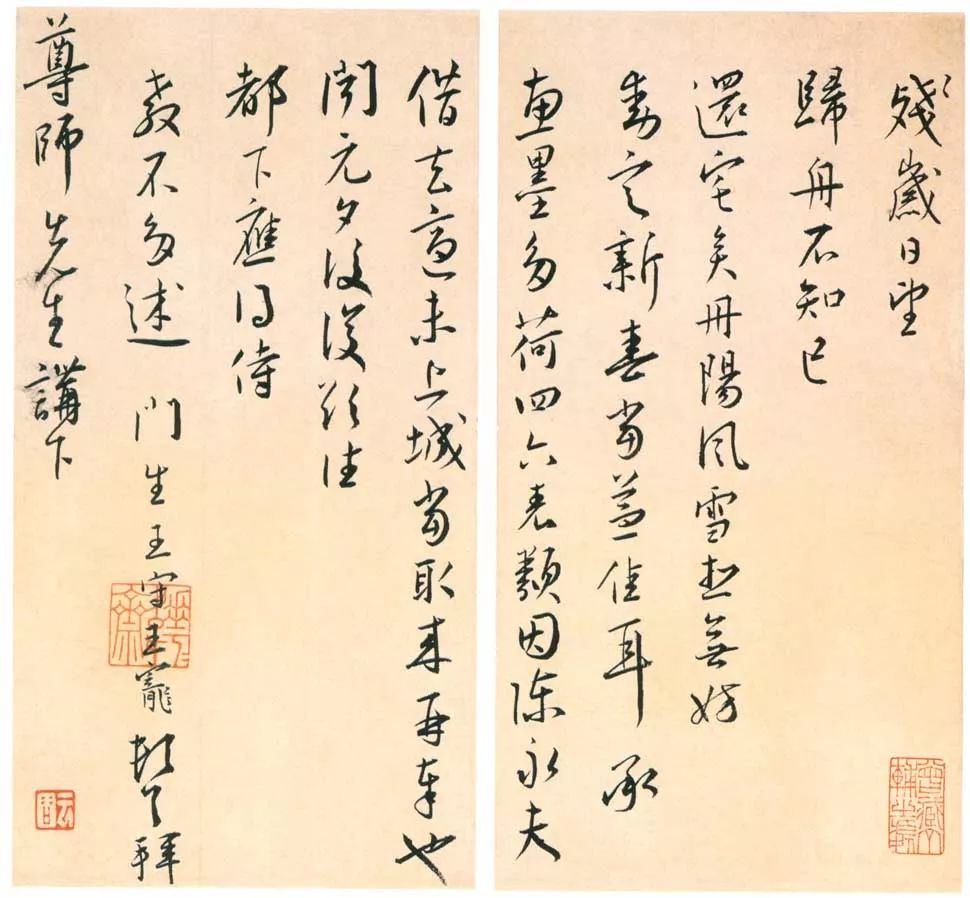 殘歲日望
歸舟不知已
還宅矣丹陽風雪想無妨
動定新春當益佳耳 承
惠墨多荷四六表類因陳永夫
借去適未上城當取來再奉也
聞元夕後復欲往
都下應得侍
教不多述 門生王守王寵頓首拜
尊師先生講下